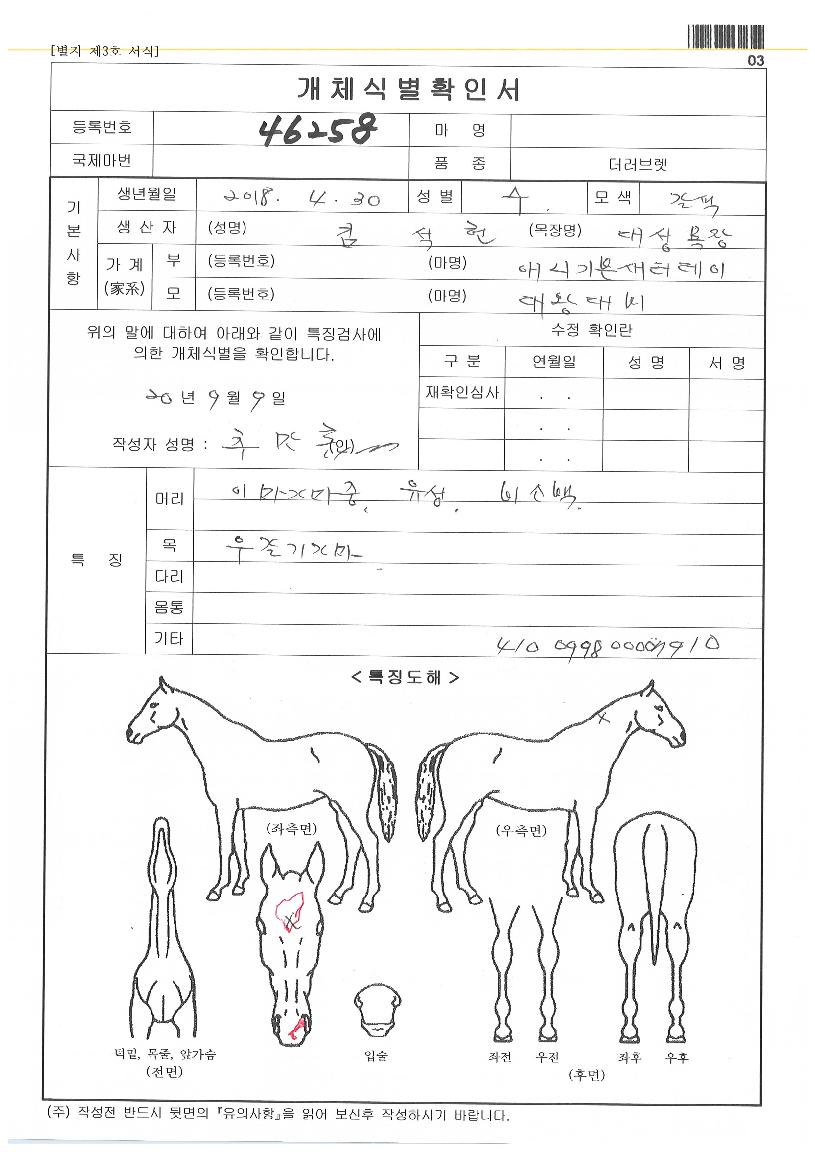 [별지 제3호 서식]
03
개체식별확인서
등록번호 46258 마 명
국제마번 품 종 더러브렛
기본사항
생년월일 2018. 4. 30 성별 수. 모색
생산자 (성명) 석 헌 (목장명) 대성목장
가계(家系) 부 (등록번호) (마명)
모 (등록번호) (마명) 대왕대비
위의 말에 대하여 아래와 같이 특징검사에
의한 개체식별을 확인합니다.
20년 9월 9일
작성자 성명 : (인)
수정 확인란
구 분 연월일 성 명 서 명
재확인심사 . .
. .
. .
특 징
머리 이마가마중, 유성, 비소백.
목
다리
몸통
기타
<특징도해>
(좌측면)
(우측면)
턱밑, 목줄, 앞가슴
(전면)
입술
좌전 우전 좌후 우후
(후면)
(주) 작성전 반드시 뒷면의 『유의사항』을 읽어 보신후 작성하시기 바랍니다.